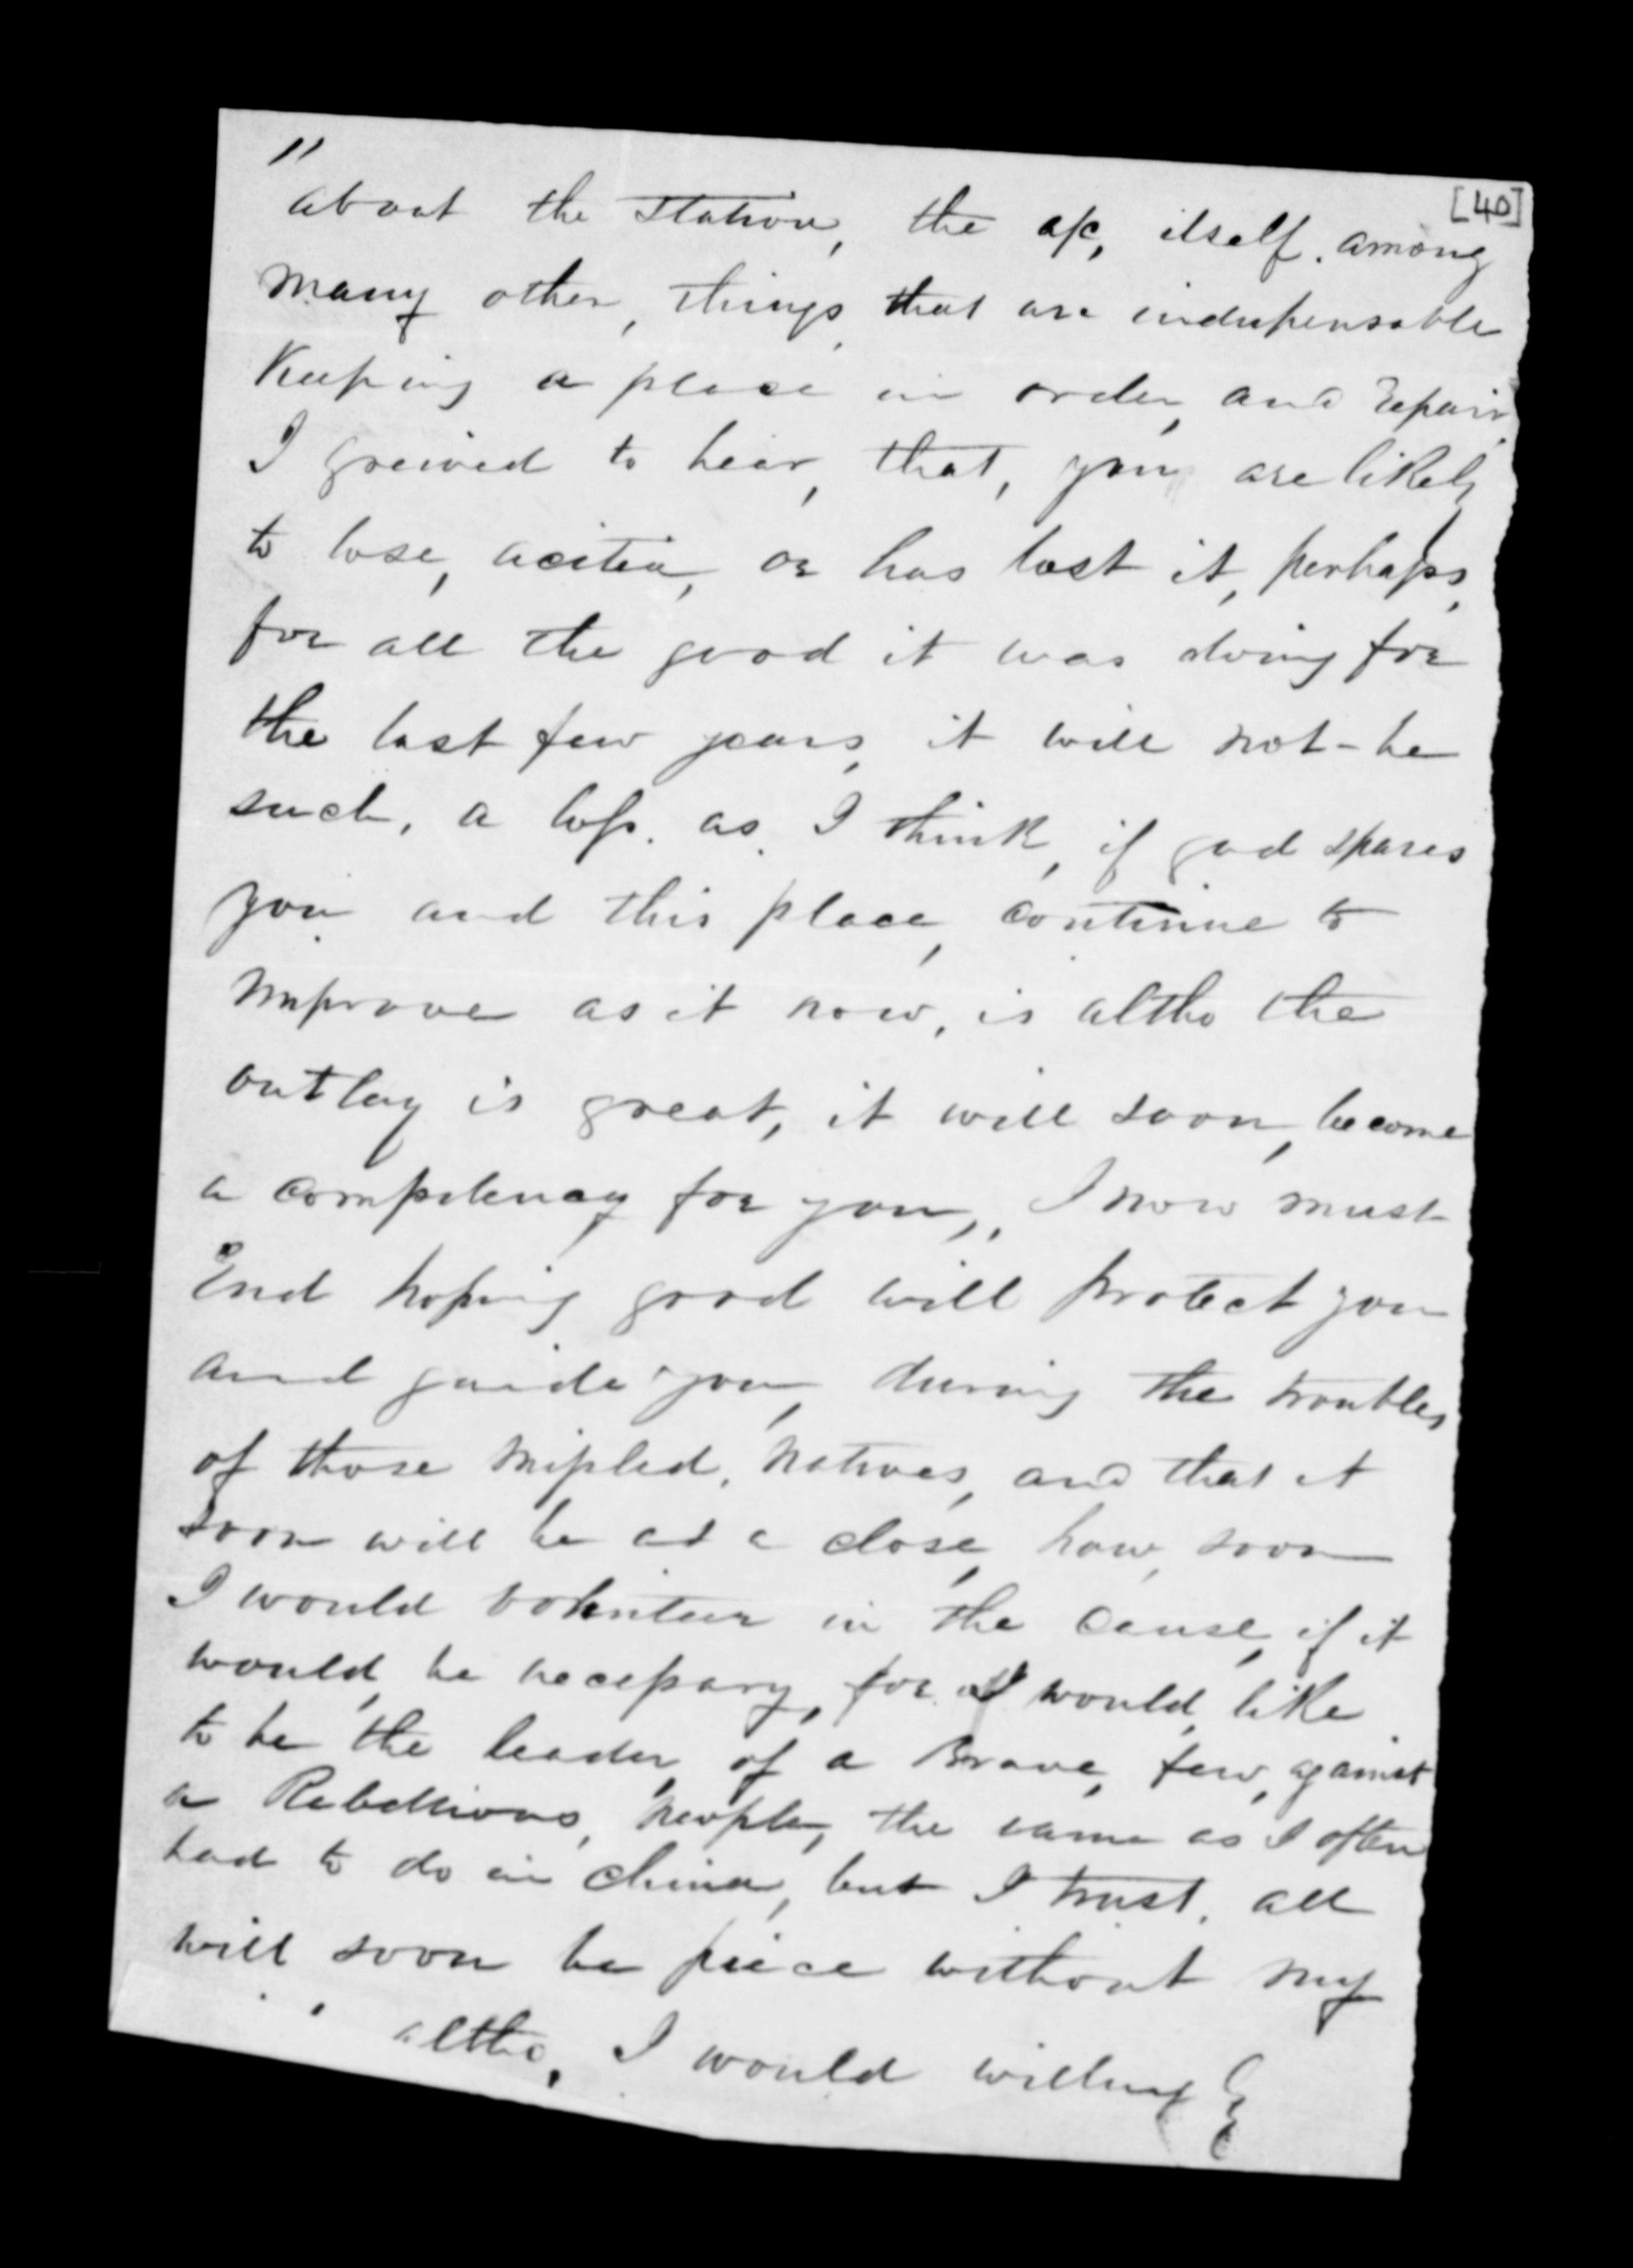 "
[40]
about the station, the a/c, itself. among
many other, things, that are indispensable
Keeping a place in order, and repair,
I greived to hear, that, you are likely
to lose, acitia, or has lost it, perhaps,
for all the good it was doing for
the last few years, it will not - be
such, a loss. as I think, if god spares
you and this place, continue to
improve as it now, is altho the
outlay is great, it will soon, become
a compitency for you,, I now must
End hoping good will protect you
and guide you, during the troubles
of those misled, natives, and that it
soon will be at a close, how, soon
I would volunteer in the cause, if it
would, be necessary, for I would, like
to be the leader, of a Brave, few, against
a Rebellious, people, the same as I often
had to do in China, but I trust. all
will soon be piece without my
altho, I would willing